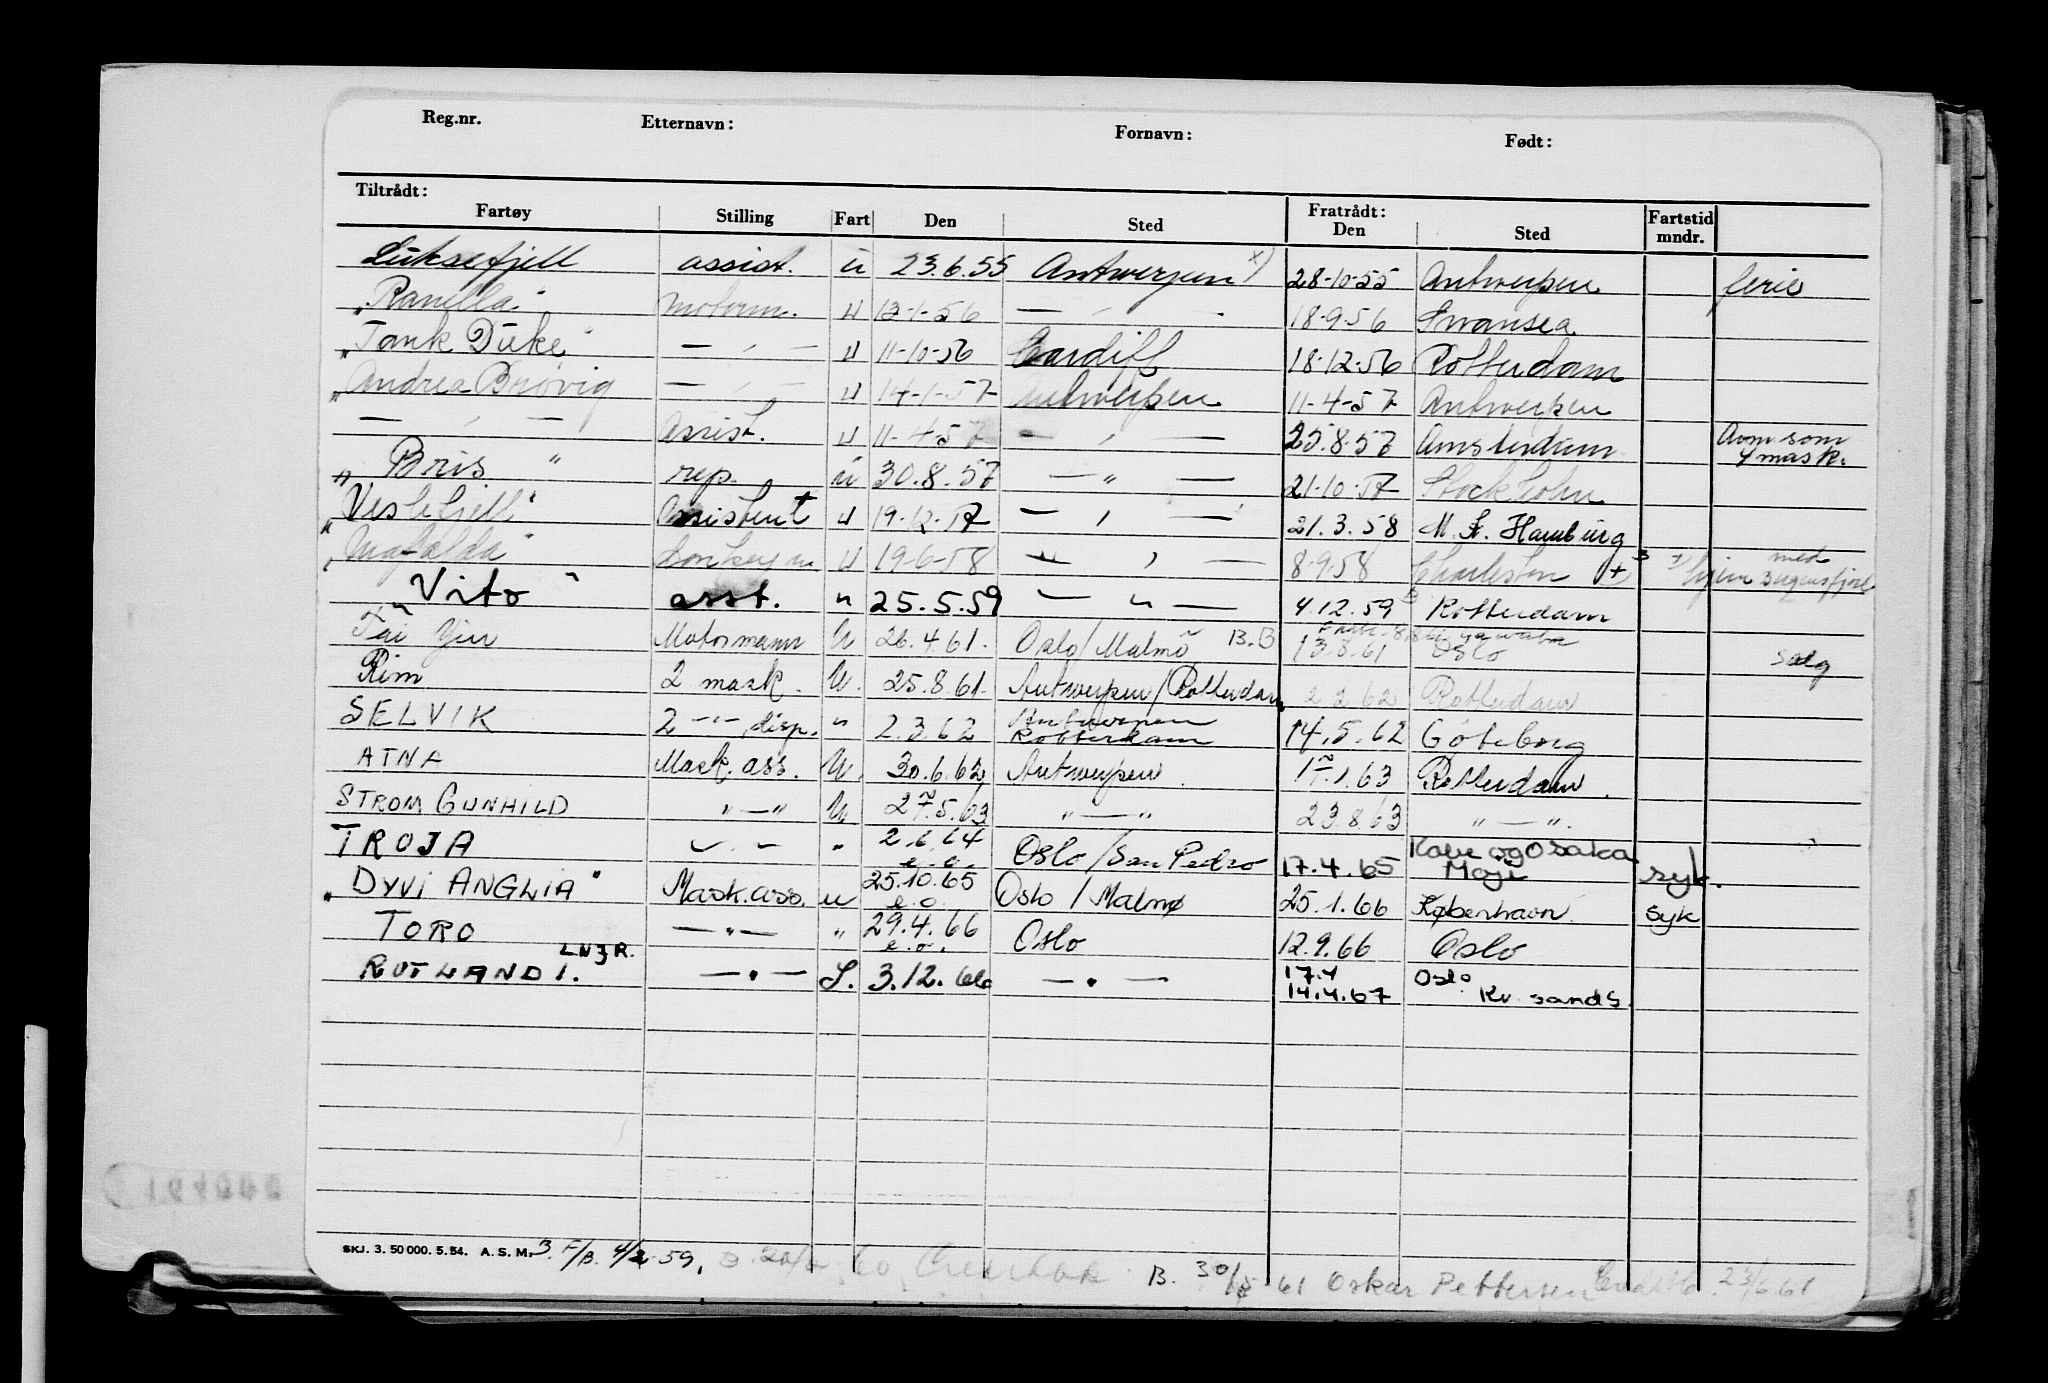 Reg.nr. Etternavn: Fornavn: Født:
Tiltrådt: Fratrådt:
Fartøy Stilling Fart Den Sted Den Sted Fartstid mndr.
Luksefjell assist. u 23.6.55 Antwerpen x) 28-10-55 Antwerpen ferie
"Ranella" motorm. u 13-1-56 — " — 18-9-56 Swansea
"Tank Duke" — " — u 11-10-56 Cardiff 18-12-56 Rotterdam
"Andrea Brøvig — " — u 14-1-57 Antwerpen 11-4-57 Antwerpen
— " — Assist. u 11-4-57 — " — 25.8.57 Amsterdam Avm som 4 mask.
" Bris " rep. u 30.8.57 — " — 21-10-57 Stockholm
"Veslefjell" Assistent u 19-12-57 — " — 21.3.58 M. St. Hamburg
"Mafalda" Donkeym u 19-6-58 — " — 8-9-58 Charleston + hjem med
Vito " asst. " 25.5.59 — " — 4.12.59 Rotterdam
Tai Yin Motormann U 26.4.61. Oslo/Malmö B.B 13.8.61 Oslo salg
Rim 2 mask. U. 25.8.61. Antwerpen/Rotterdam 2 2 62 Rotterdam
SELVIK 2 —"— disp. " 2.3.62 Antwerpen Rotterdam 14.5.62 Göteborg
ATNA Mask. ass. U. 30.6.62 Antwerpen. 17.1.63 Rotterdam.
STROM GUNHILD "—" U. 27.5.63 "—" 23.8.63 "—".
TROJA " — " " 2.6.64 e.o. Oslo/San Pedro 17.4.65 Kobe og Osaka Moji syk.
"DYVI ANGLIA" Mask.ass. u 25.10.65 e.o. Oslo / Malmø 25.1.66 København syk
TORO —"— " 29.4.66 e.o. Oslo 12.9.66 Oslo
RUTLAND 1. LNJR. —"— S. 3.12.66 —"— 17.4 14.4.67 Oslo Kr. sands.
SKJ. 3. 50 000. 5. 54. A. S. M. 3. F/B. 4/2-59, B. 30/5-61 Oskar Pettersen 23/6.61